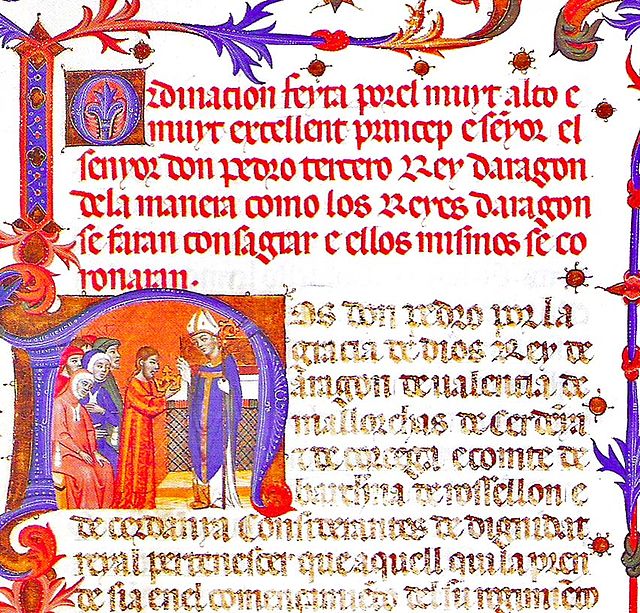 Ordinacion feyta por el muyt alto e
muyt excellent princep e seynor el
senyor don pedro tercero Rey daragon
de la manera como los Reyes daragon
se faran consagrar e ellos mismos se co
ronaran.
Nos don pedro por la
gracia de dios Rey de
aragon de valencia de
mallorchas de Cerdenya
t de corcega e comte de
barchna de rossellon e
de cerdanya Consirerantes de dignidat
reyal pertenescer que aquell qui la pren
de sia en el començamiento del su regimiento